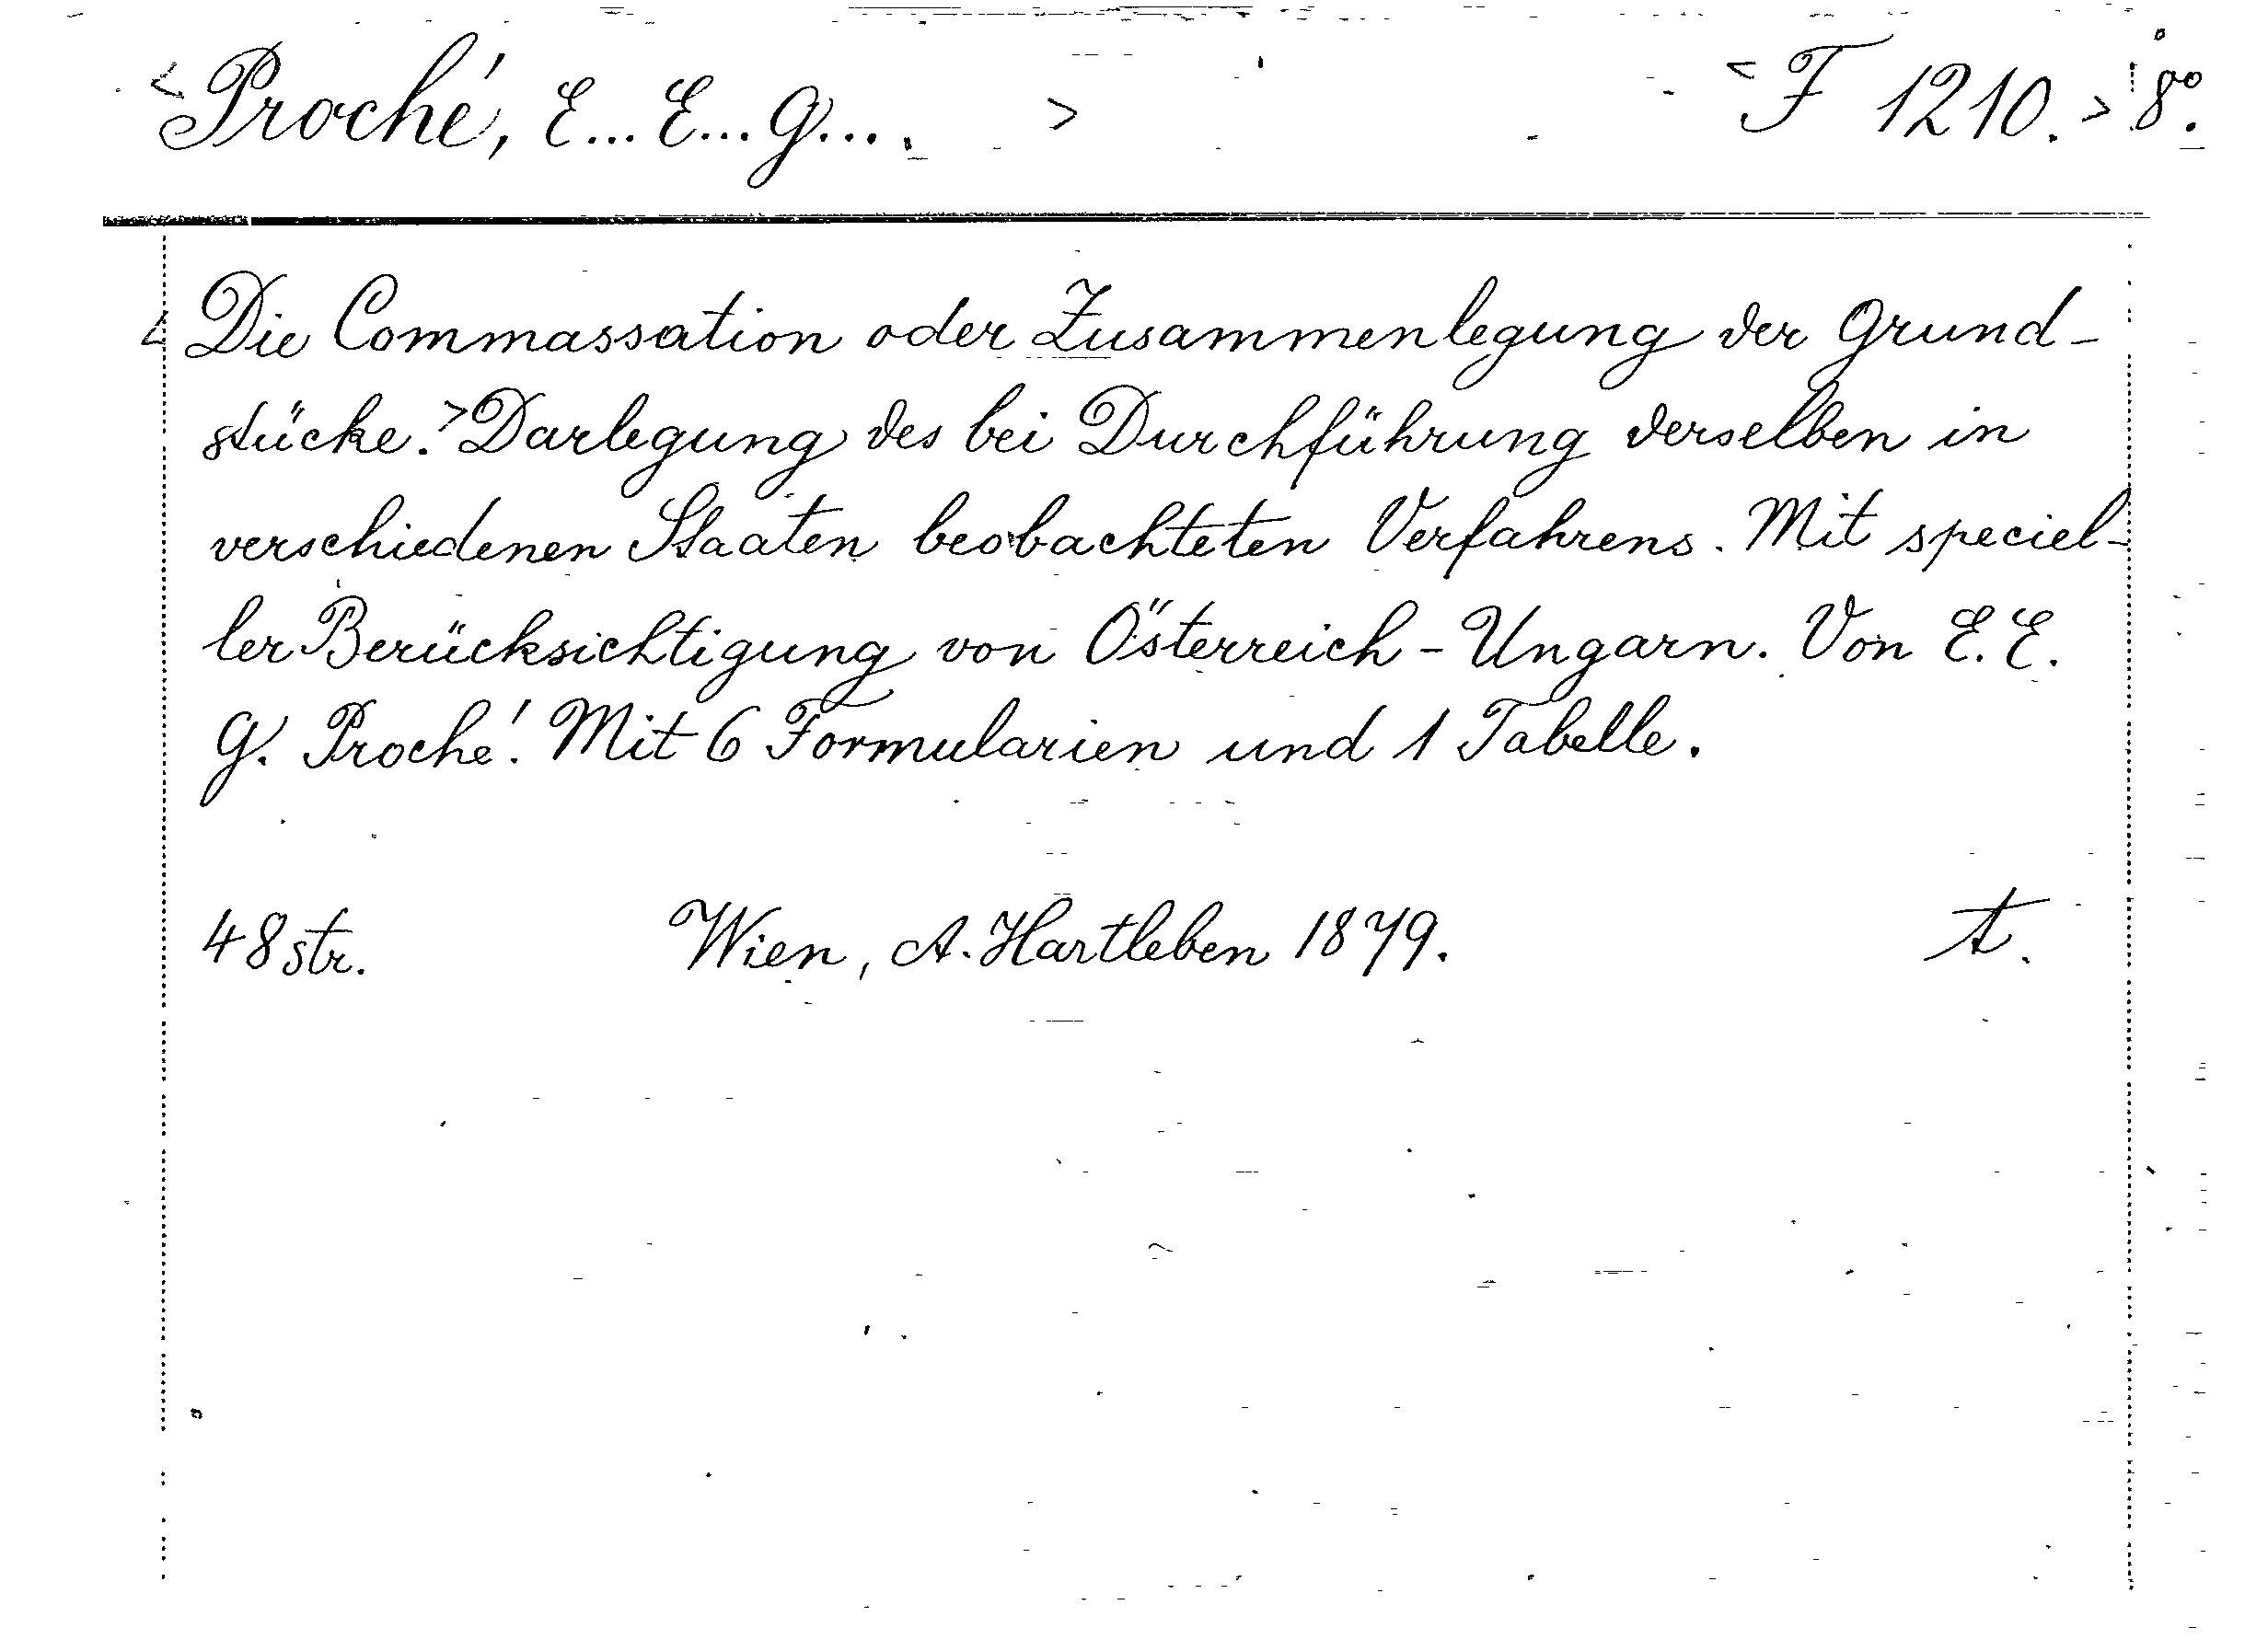 <Proché, E... E... G.... > <F 1210.> 8º.
<Die Commassation oder Zusammenlegung der Grund-
stücke.> Darlegung des bei Durchführung derselben in
verschiedenen Staaten beobachteten Verfahrens. Mit speciel-
ler Berücksichtigung von Österreich-Ungarn. Von E. E.
G. Proché. Mit 6 Formularien und 1 Tabelle.
48 str. Wien, A. Hartleben 1879. t.